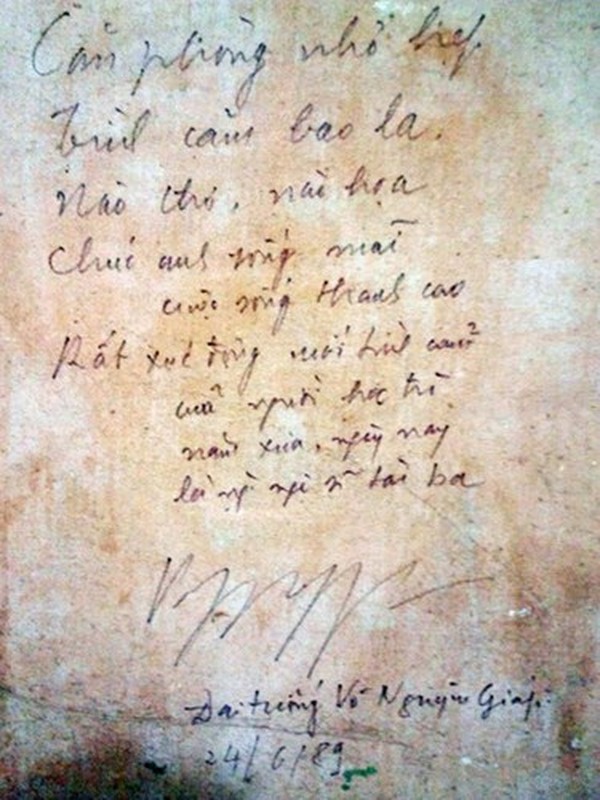 Căn phòng nhỏ hẹp
Tình cảm bao la.
Nào thơ, nào họa
Chúc anh sống mãi
cuộc sống thanh cao
Rất xúc động với tình cảm
của người học trò
năm xưa, ngày nay
là nghệ sĩ tài ba
Đại tướng Võ Nguyên Giáp
24/6/89